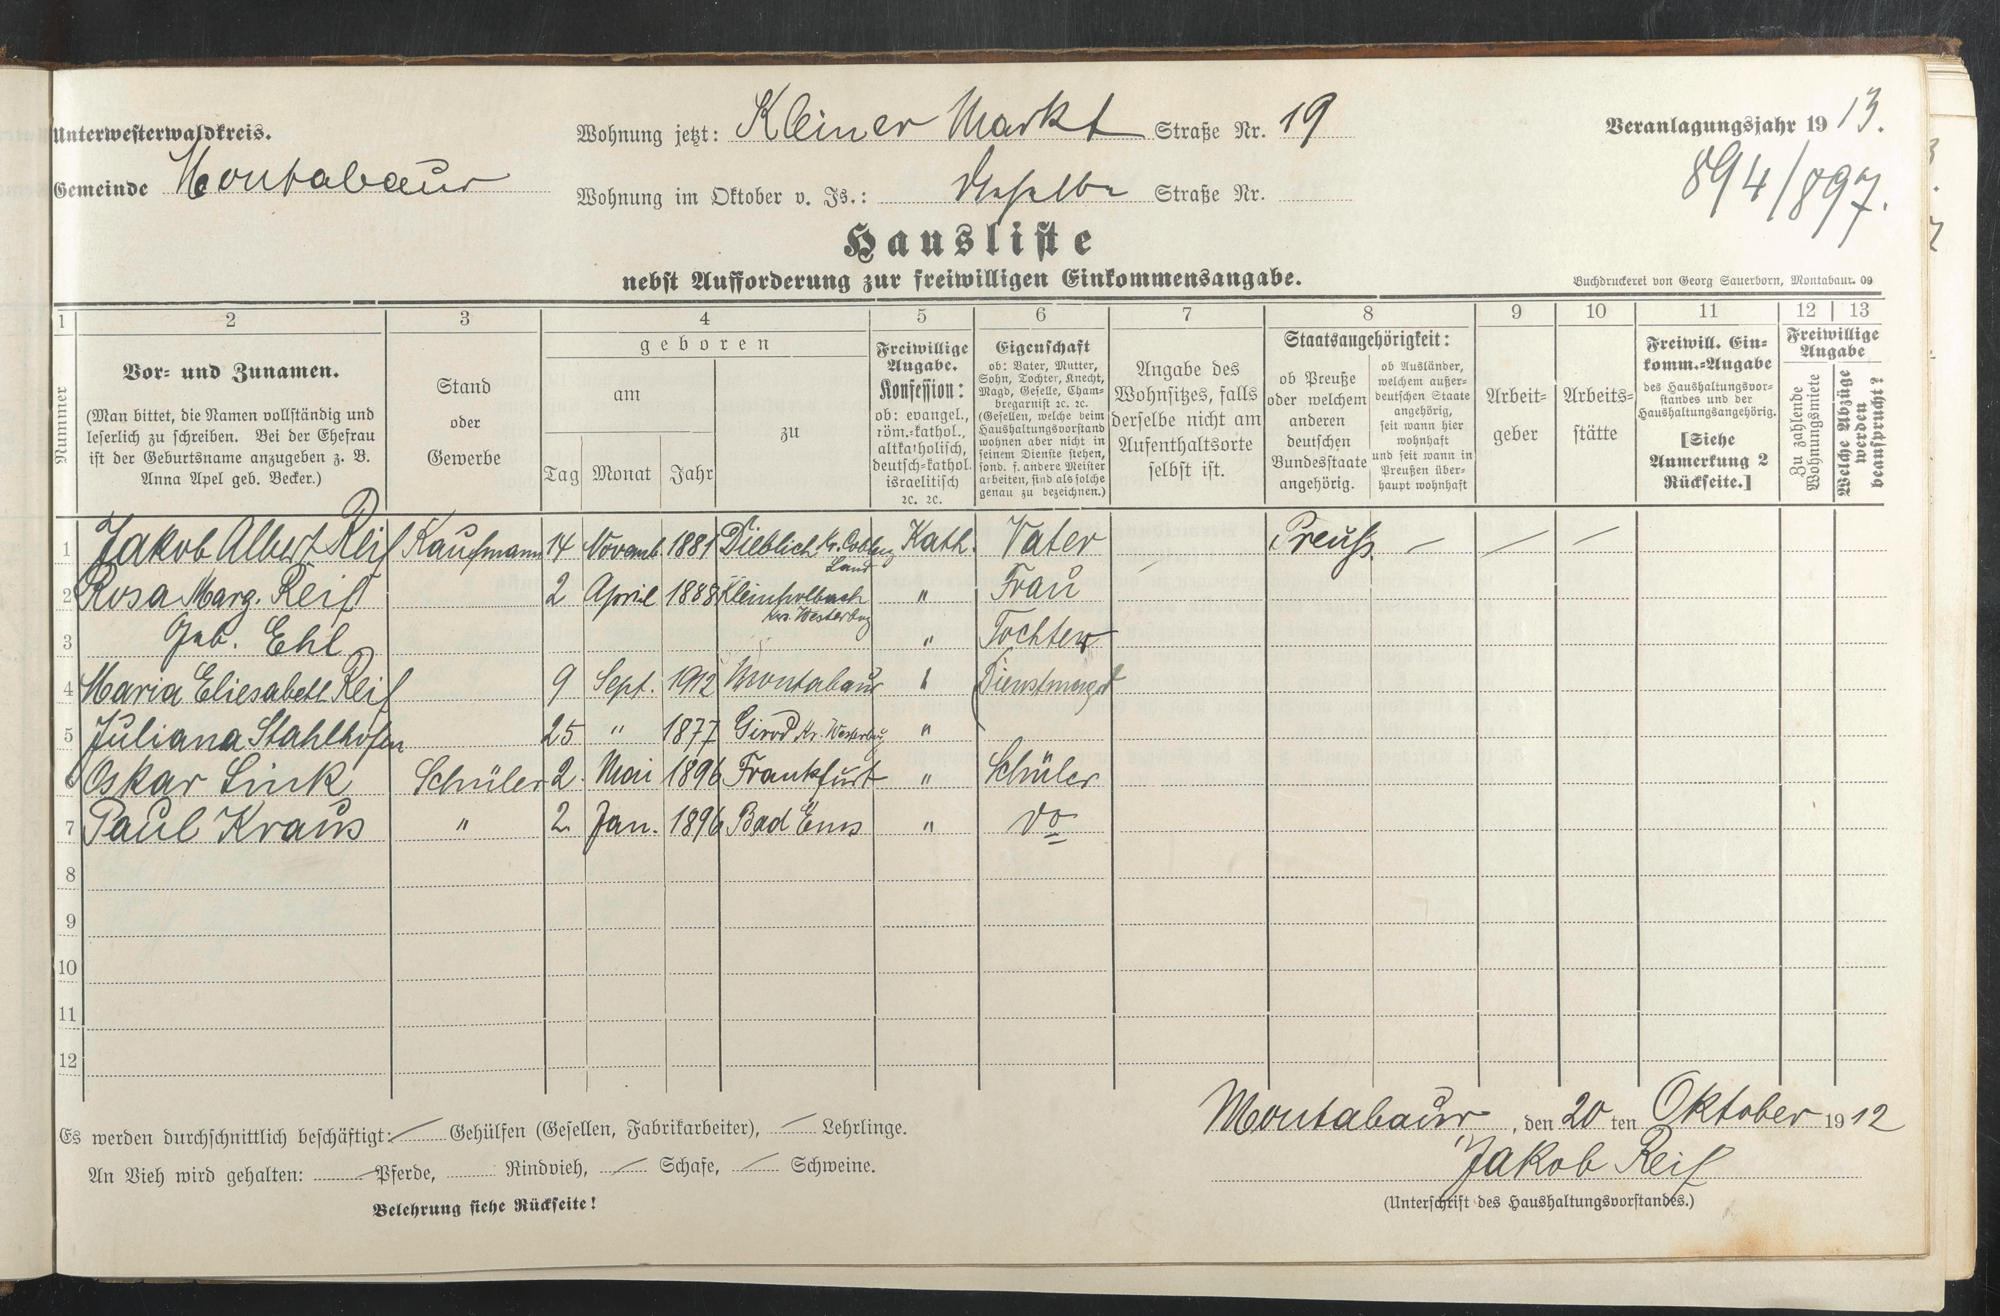 Unterwesterwaldkreis.
Gemeinde Montabaur
Wohnung jetzt: Kleiner Markt Straße Nr. 19
Wohnung im Oktober v. Js.: Dieselbe Straße Nr.
Veranlagungsjahr 1913.
894/897.
Hausliste
nebst Aufforderung zur freiwilligen Einkommensangabe.
Buchdruckerei von Georg Sauerborn, Montabaur. 09
1 2 3 4 5 6 7 8 9 10 11 12 13
Nummer
Vor- und Zunamen.
(Man bittet, die Namen vollständig und
leserlich zu schreiben. Bei der Ehefrau
ist der Geburtsname anzugeben z. B.
Anna Apel geb. Becker.)
Stand
oder
Gewerbe
geboren
am
zu
Tag Monat Jahr
Freiwillige
Angabe.
Konfession:
ob: evangel.,
röm.-kathol.,
altkatholisch,
deutsch-kathol.
israelitisch
ꝛc. ꝛc.
Eigenschaft
ob: Vater, Mutter,
Sohn, Tochter, Knecht,
Magd, Geselle, Cham-
bregarnist ꝛc. ꝛc.
(Gesellen, welche beim
Haushaltungsvorstand
wohnen aber nicht in
seinem Dienste stehen,
sond. f. andere Meister
arbeiten, sind als solche
genau zu bezeichnen.)
Angabe des
Wohnsitzes, falls
derselbe nicht am
Aufenthaltsorte
selbst ist.
Staatsangehörigkeit:
ob Preuße
oder welchem
anderen
deutschen
Bundesstaate
angehörig.
ob Ausländer,
welchem außer-
deutschen Staate
angehörig,
seit wann hier
wohnhaft
und seit wann in
Preußen über-
haupt wohnhaft
Arbeit-
geber
Arbeits-
stätte
Freiwill. Ein-
komm.-Angabe
des Haushaltungsvor-
standes und der
Haushaltungsangehörig.
[Siehe
Anmerkung 2
Rückseite.]
Freiwillige
Angabe
Zu zahlende
Wohnungsmiete
Welche Abzüge
werden
beansprucht?
1 Jakob Albert Reif Kaufmann 14 Novemb. 1881 Dieblich Kr. Coblenz Land Kath. Vater Preuß. — — —
2 Rosa Marg. Reif 2 April 1888 Kleinholbach Krs. Westerburg " Frau
3 Geb. Ehl " Tochter
4 Maria Eliesabeth Reif 9 Sept. 1912 Montabaur " Dienstmagd
5 Juliana Stahlhofen 25 " 1877 Girod Kr. Westerburg "
6 Oskar Link Schüler 2. Mai 1896 Frankfurt " Schüler
7 Paul Kraus " 2. Jan. 1896 Bad Ems " do
8
9
10
11
12
Es werden durchschnittlich beschäftigt: — Gehülfen (Gesellen, Fabrikarbeiter), — Lehrlinge.
An Vieh wird gehalten: — Pferde, Rindvieh, — Schafe, — Schweine.
Belehrung siehe Rückseite!
Montabaur, den 20 ten Oktober 1912
Jakob Reif
(Unterschrift des Haushaltungsvorstandes.)